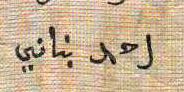 احمد بنانيي